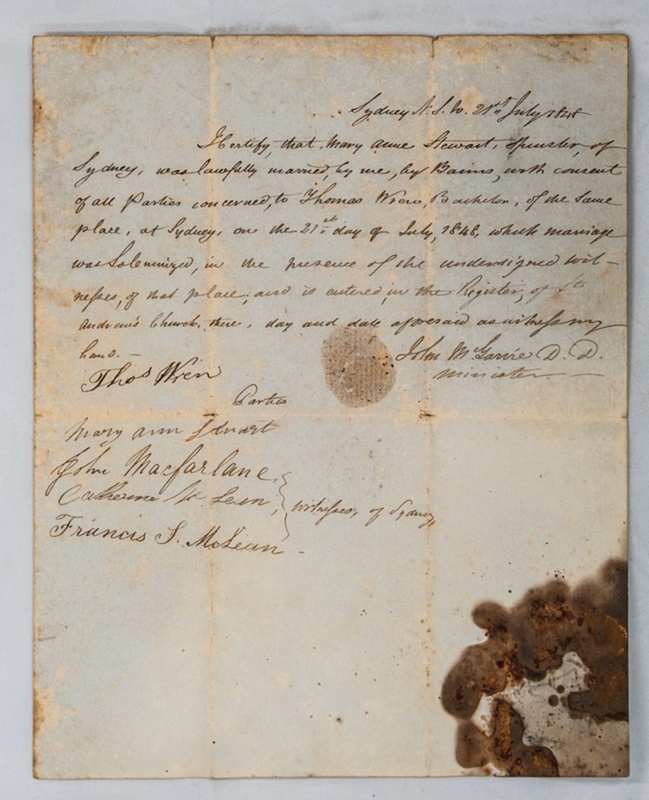 Sydney N. S. W. 21st July 1848
I certify, that Mary Anne Stewart, Spinster, of
Sydney, was lawfully married, by me, by Banns, with consent
of all Parties concerned, to Thomas Wren, Bachelor, of the same
place, at Sydney, on the 21st day of July, 1848, which marriage
was Solemnized, in the presence of the undersigned wit-
nesses, of that place; and is entered, in the Register, of St
Andrew's Church, there, day and date aforesaid as witness my
hand. —
John McGarvie D. D.
Minister
Thos Wren
Parties
Mary ann Stuart
John Macfarlane
Catherine McLean
Witnesses, of Sydney
Francis S. McLean